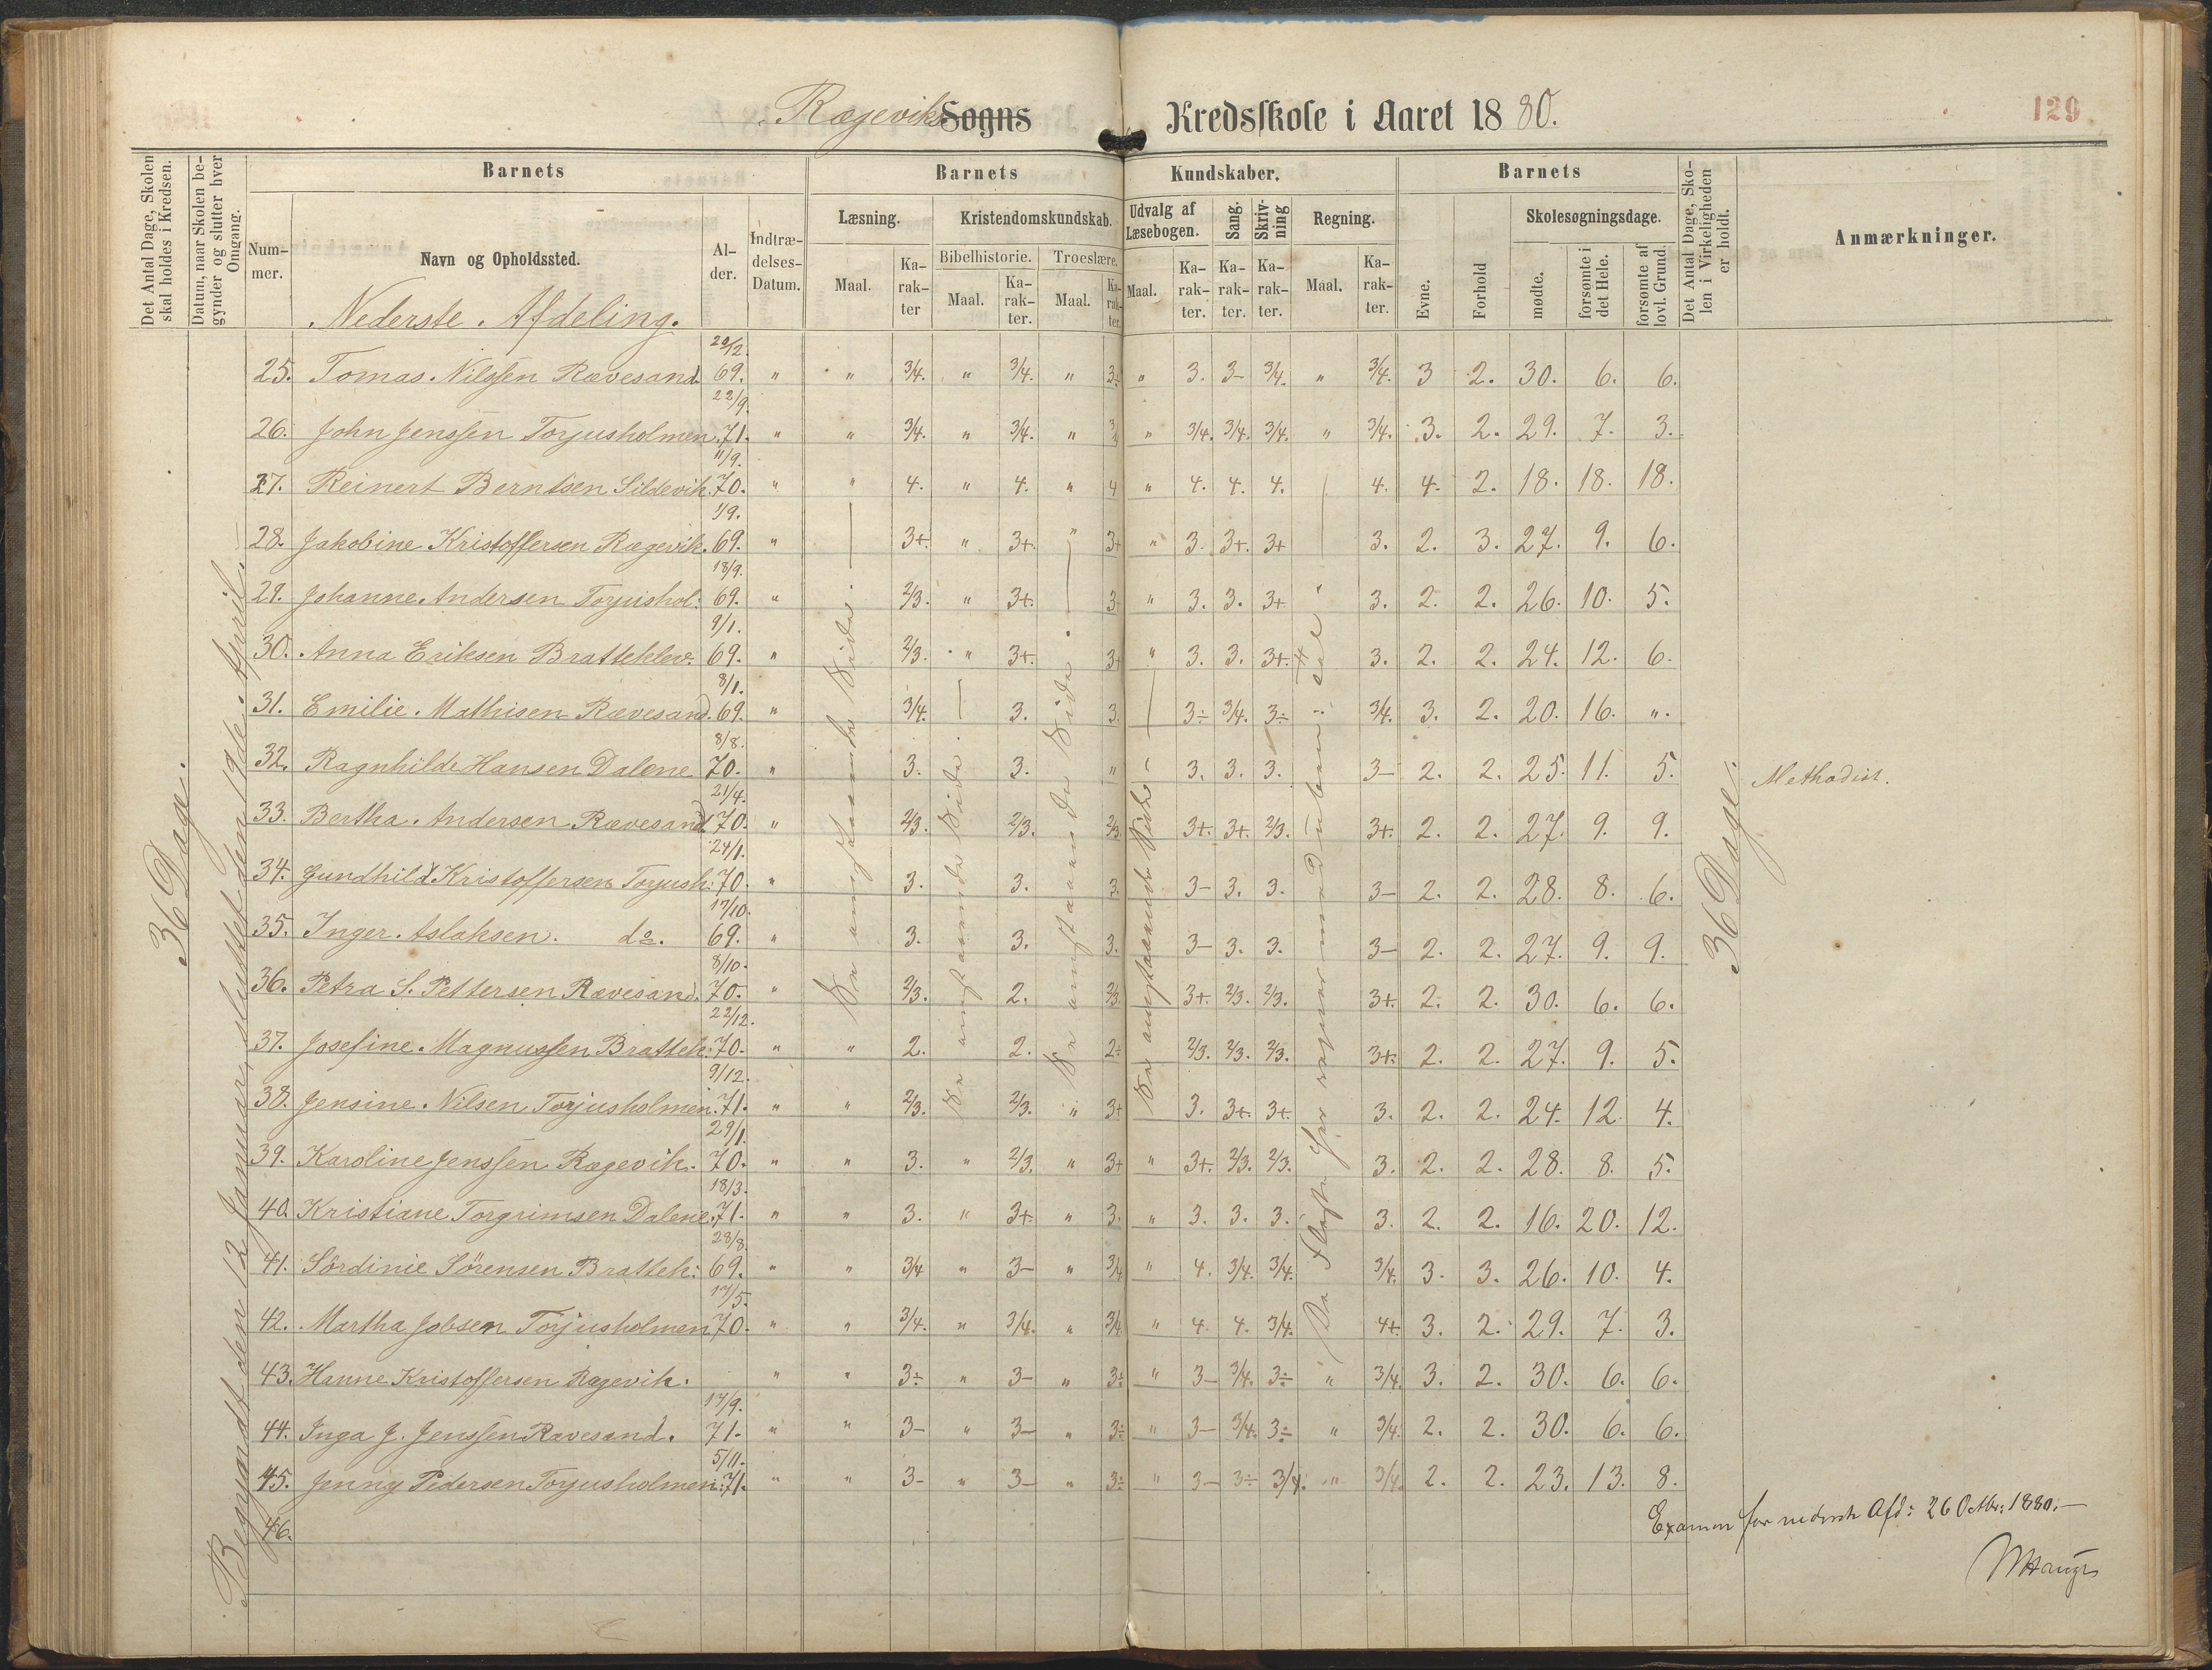 Rægeviks Sogns Kredsskole i Aaret 1880.
129
Det Antal Dage, Skolen skal holdes i Kredsen.
Datum, naar Skolen begynder og slutter hver Omgang.
Barnets
Barnets
Kundskaber.
Barnets
Det Antal Dage, Skolen i Virkeligheden er holdt.
Anmærkninger.
Nummer.
Navn og Opholdssted.
Alder.
Indtrædelses-Datum.
Læsning.
Kristendomskundskab.
Udvalg af Læsebogen.
Sang.
Skrivning
Regning.
Evne.
Forhold
Skolesøgningsdage.
Bibelhistorie.
Troeslære.
Maal.
Karakter
Maal.
Karakter.
Maal.
Karakter.
Maal.
Karakter.
Karakter.
Karakter.
Maal.
Karakter.
mødte.
forsømte i det Hele.
forsømte af lovl. Grund.
Nederste Afdeling.
36 Dage.
Begyndt den 12 Januar, sluttet den 19de April.
25. Tomas Nilssen Rævesand 20/12. 69. " " 3/4. " 3/4. " 3÷ " 3. 3- 3/4. " 3/4. 3 2. 30. 6. 6.
26. John Jenssen Torjusholmen. 22/9. 71. " " 3/4. " 3/4. " 3/4 " 3/4. 3/4. 3/4. " 3/4. 3. 2. 29. 7. 3.
27. Reinert Berntsen Sildevik. 11/9. 70. " " 4. " 4. " 4 " 4. 4. 4. 4. 4. 2. 18. 18. 18.
28. Jakobine Kristoffersen Rægevik. 1/9. 69. " 3+. " 3+. " 3+ " 3. 3+. 3+ 3. 2. 3. 27. 9. 6.
29. Johanne Andersen Torjushol: 18/9. 69. " 2/3. " 3+. 3+ " 3. 3. 3+ 3. 2. 2. 26. 10. 5.
30. Anna Eriksen Bratteklev. 9/1. 69. " 2/3. " 3+. 3+ " 3. 3. 3+. 3. 2. 2. 24. 12. 6.
31. Emilie Mathisen Rævesand. 8/1. 69. " 3/4. 3. 3. 3÷ 3/4. 3÷ 3/4. 3. 2. 20. 16. ".
32. Ragnhilde Hansen Dalene 8/8. 70. " 3. 3. " 3. 3. 3. 3- 2. 2. 25. 11. 5. Methodist.
33. Bertha Andersen Rævesand 21/4. 70. " 2/3. 2/3. 2/3. 3+. 3+. 2/3. 3+. 2. 2. 27. 9. 9.
34. Gundhild Kristoffersen Torjush: 24/1. 70. " 3. 3. 3. 3- 3. 3. 3- 2. 2. 28. 8. 6.
35. Inger Aslaksen. do. 17/10. 69. " 3. 3. 3. 3- 3. 3. 3- 2. 2. 27. 9. 9.
36. Petra S. Pettersen Rævesand. 8/10. 70. " 2/3. 2. 2/3. 3+. 2/3. 2/3. 3+. 2. 2. 30. 6. 6.
37. Josefine Magnussen Brattek: 22/12. 70. " " 2. 2. 2÷ 2/3. 2/3. 2/3. 3+. 2. 2. 27. 9. 5.
38. Jensine Nilsen Torjusholmen. 9/12. 71. " " 2/3. 2/3. " 3+ 3. 3+. 3+. 3. 2. 2. 24. 12. 4.
39. Karoline Jenssen Rægevik. 29/1. 70. " " 3. " 2/3. " 3+ " 3+. 2/3. 2/3. 3. 2. 2. 28. 8. 5.
40. Kristiane Torgrimsen Dalene. 18/3. 71. " " 3. " 3+. " 3. " 3. 3. 3. 3. 2. 2. 16. 20. 12.
41. Sördinie Sörensen Brattek: 28/8. 69. " " 3/4 " 3- " 3/4 " 4. 3/4. 3/4. 3/4. 3. 3. 26. 10. 4.
42. Martha Jobsen Torjusholmen 17/5. 70. " " 3/4. " 3/4. " 3/4 " 4. 4. 3/4. 4+. 3. 2. 29. 7. 3.
43. Hanne Kristoffersen Rægevik. " " 3÷ " 3- " 3÷ " 3- 3/4. 3÷ " 3/4. 3. 2. 30. 6. 6.
44. Inga J. Jenssen Rævesand. 17/9. 71. " " 3- " 3- " 3÷ " 3- 3/4. 3÷ " 3/4. 2. 2. 30. 6. 6.
45. Jenny Pedersen Torjusholmen: 5/11. 71. " " 3- " 3- " 3÷ " 3- 3÷ 3/4. " 3/4. 2. 2. 23. 13. 8.
46.
Se angstaaende Side.
Se angstaaende Side.
Se angstaaende Side.
Se angstaaende Side
De fleste her regner med
36 Dage.
Examen for nederste Afd: 26 Octbr: 1880.